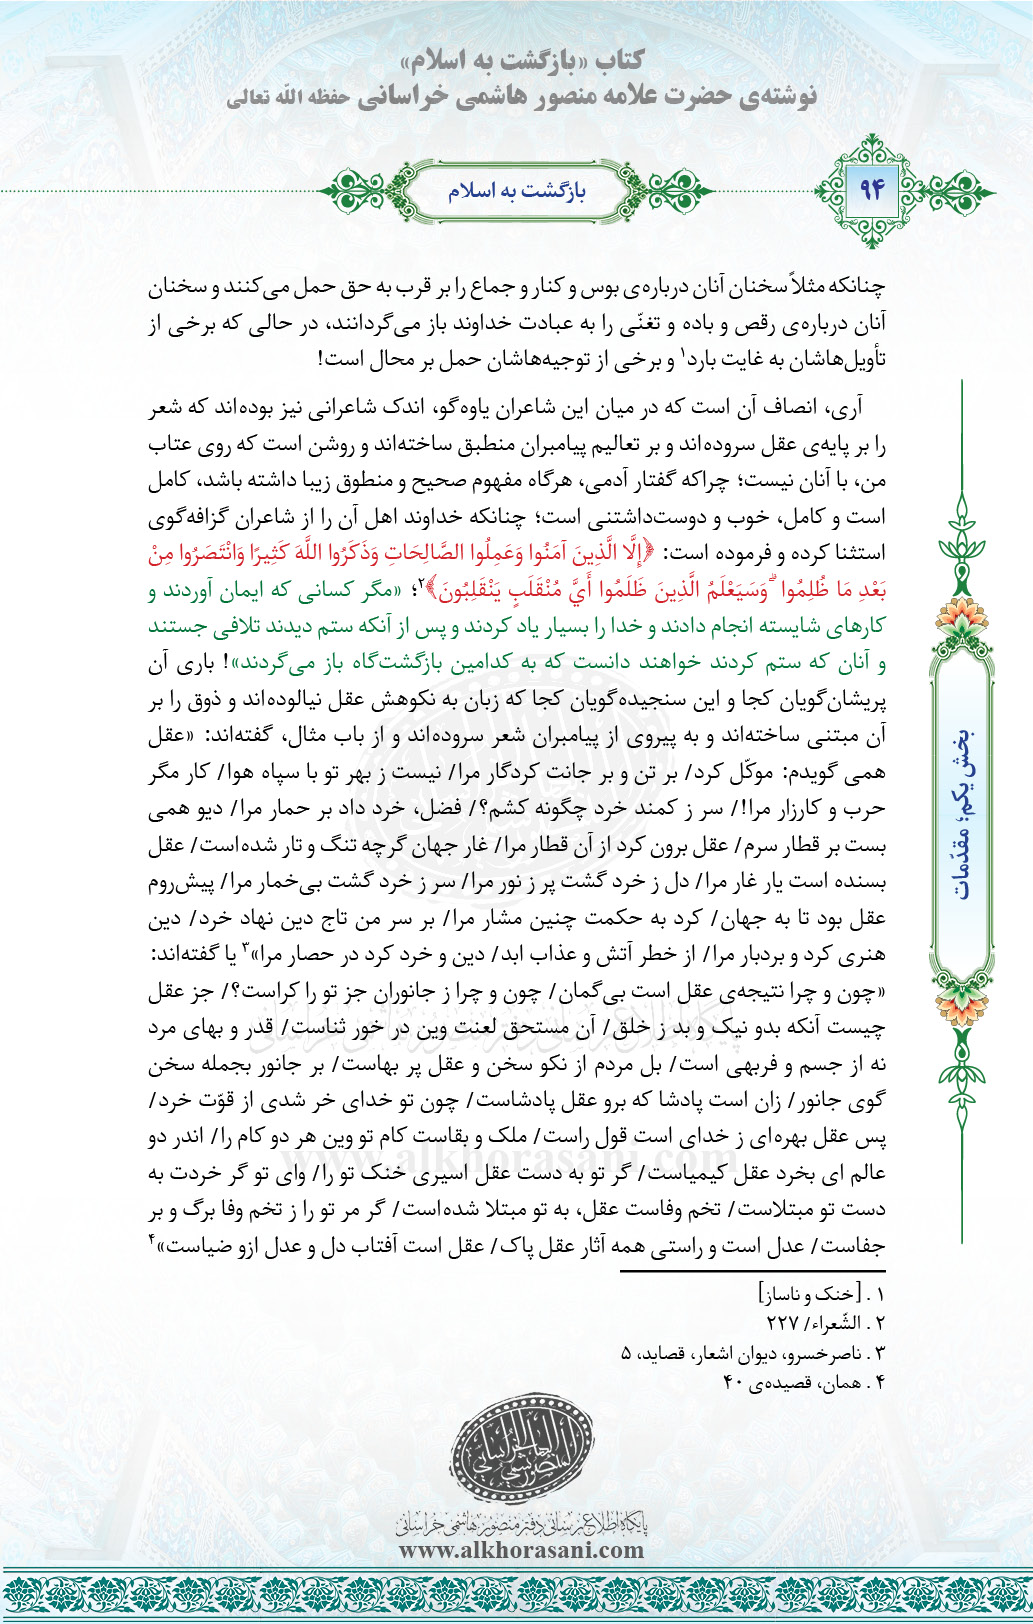 کتاب «بازگشت به اسلام»
نوشته‌ی حضرت علامه منصور هاشمی خراسانی حفظه الله تعالی
۹۴
بازگشت به اسلام
چنانکه مثلاً سخنان آنان درباره‌ی بوس و کنار و جماع را بر قرب به حق حمل می‌کنند و سخنان
آنان درباره‌ی رقص و باده و تغنّی را به عبادت خداوند باز می‌گردانند، در حالی که برخی از
تأویل‌هاشان به غایت بارد۱ و برخی از توجیه‌هاشان حمل بر محال است!
آری، انصاف آن است که در میان این شاعران یاوه‌گو، اندک شاعرانی نیز بوده‌اند که شعر
را بر پایه‌ی عقل سروده‌اند و بر تعالیم پیامبران منطبق ساخته‌اند و روشن است که روی عتاب
من، با آنان نیست؛ چراکه گفتار آدمی، هرگاه مفهوم صحیح و منطوق زیبا داشته باشد، کامل
است و کامل، خوب و دوست‌داشتنی است؛ چنانکه خداوند اهل آن را از شاعران گزافه‌گوی
استثنا کرده و فرموده است: ﴿إِلَّا الَّذِينَ آمَنُوا وَعَمِلُوا الصَّالِحَاتِ وَذَكَرُوا اللَّهَ كَثِيرًا وَانْتَصَرُوا مِنْ
بَعْدِ مَا ظُلِمُوا ۗ وَسَيَعْلَمُ الَّذِينَ ظَلَمُوا أَيَّ مُنْقَلَبٍ يَنْقَلِبُونَ﴾۲؛ «مگر کسانی که ایمان آوردند و
کارهای شایسته انجام دادند و خدا را بسیار یاد کردند و پس از آنکه ستم دیدند تلافی جستند
و آنان که ستم کردند خواهند دانست که به کدامین بازگشت‌گاه باز می‌گردند»! باری آن
پریشان‌گویان کجا و این سنجیده‌گویان کجا که زبان به نکوهش عقل نیالوده‌اند و ذوق را بر
آن مبتنی ساخته‌اند و به پیروی از پیامبران شعر سروده‌اند و از باب مثال، گفته‌اند: «عقل
همی گویدم: موکّل کرد/ بر تن و بر جانت کردگار مرا/ نیست ز بهر تو با سپاه هوا/ کار مگر
حرب و کارزار مرا!/ سر ز کمند خرد چگونه کشم؟/ فضل، خرد داد بر حمار مرا/ دیو همی
بست بر قطار سرم/ عقل برون کرد از آن قطار مرا/ غار جهان گرچه تنگ و تار شده‌است/ عقل
بسنده است یار غار مرا/ دل ز خرد گشت پر ز نور مرا/ سر ز خرد گشت بی‌خمار مرا/ پیش‌روم
عقل بود تا به جهان/ کرد به حکمت چنین مشار مرا/ بر سر من تاج دین نهاد خرد/ دین
هنری کرد و بردبار مرا/ از خطر آتش و عذاب ابد/ دین و خرد کرد در حصار مرا»۳ یا گفته‌اند:
«چون و چرا نتیجه‌ی عقل است بی‌گمان/ چون و چرا ز جانوران جز تو را کراست؟/ جز عقل
چیست آنکه بدو نیک و بد ز خلق/ آن مستحق لعنت وین در خور ثناست/ قدر و بهای مرد
نه از جسم و فربهی است/ بل مردم از نکو سخن و عقل پر بهاست/ بر جانور بجمله سخن
گوی جانور/ زان است پادشا که برو عقل پادشاست/ چون تو خدای خر شدی از قوّت خرد/
پس عقل بهره‌ای ز خدای است قول راست/ ملک و بقاست کام تو وین هر دو کام را/ اندر دو
عالم ای بخرد عقل کیمیاست/ گر تو به دست عقل اسیری خنک تو را/ وای تو گر خردت به
دست تو مبتلاست/ تخم وفاست عقل، به تو مبتلا شده‌است/ گر مر تو را ز تخم وفا برگ و بر
جفاست/ عدل است و راستی همه آثار عقل پاک/ عقل است آفتاب دل و عدل ازو ضیاست»۴
۱ . [خنک و ناساز]
۲ . الشّعراء/ ۲۲۷
۳ . ناصرخسرو، دیوان اشعار، قصاید، ۵
۴ . همان، قصیده‌ی ۴۰
بخش یکم؛ مقدّمات
المنصور الهاشمي الخراساني
پایگاه اطلاع‌رسانی دفتر منصور هاشمی خراسانی
www.alkhorasani.com